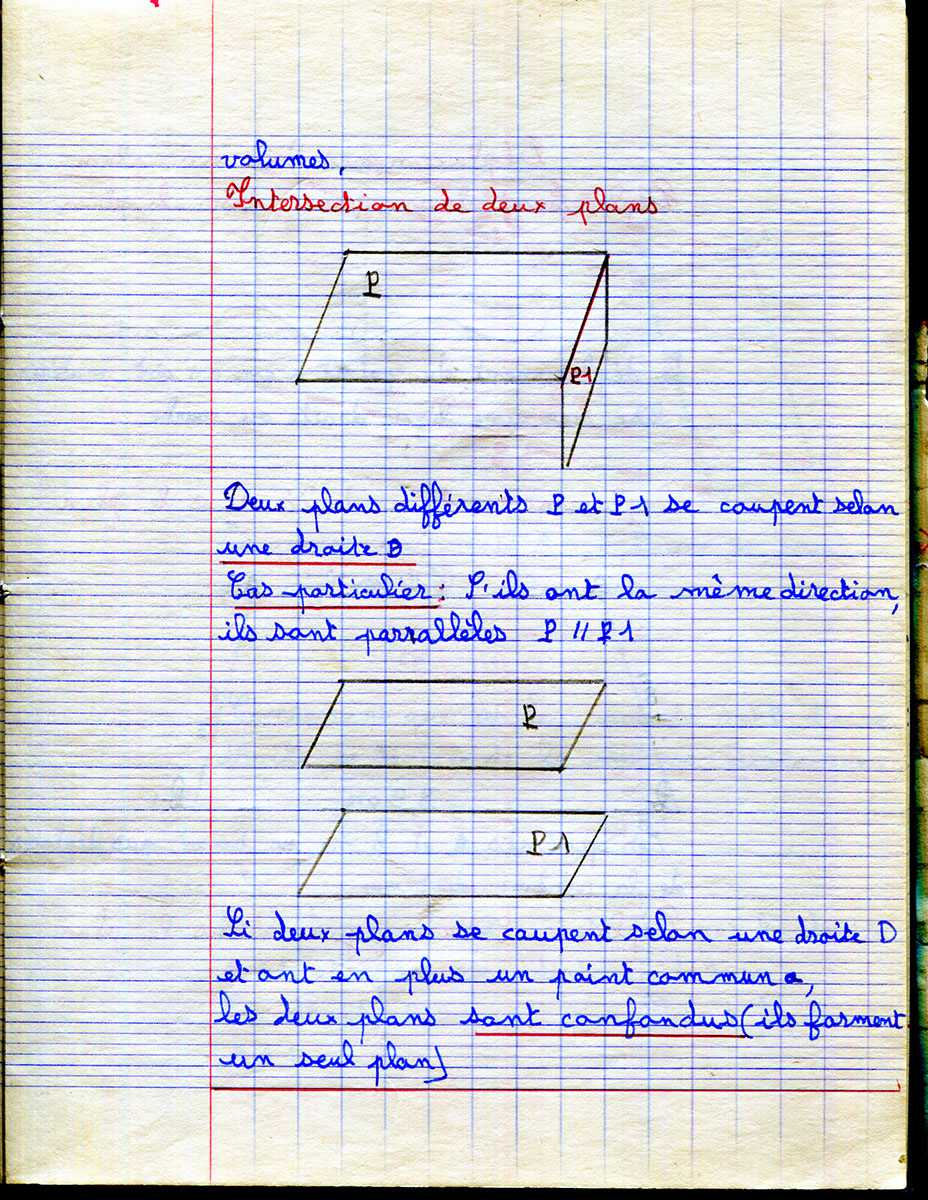 volumes.
Intersection de deux plans
P
P1
Deux plans différents P et P1 se coupent selon
une droite D
Cas particulier : S'ils ont la même direction,
ils sont parrallèles P // P1
P
P1
Si deux plans se coupent selon une droite D
et ont en plus un point commun,
les deux plans sont confondus (ils forment
un seul plan)